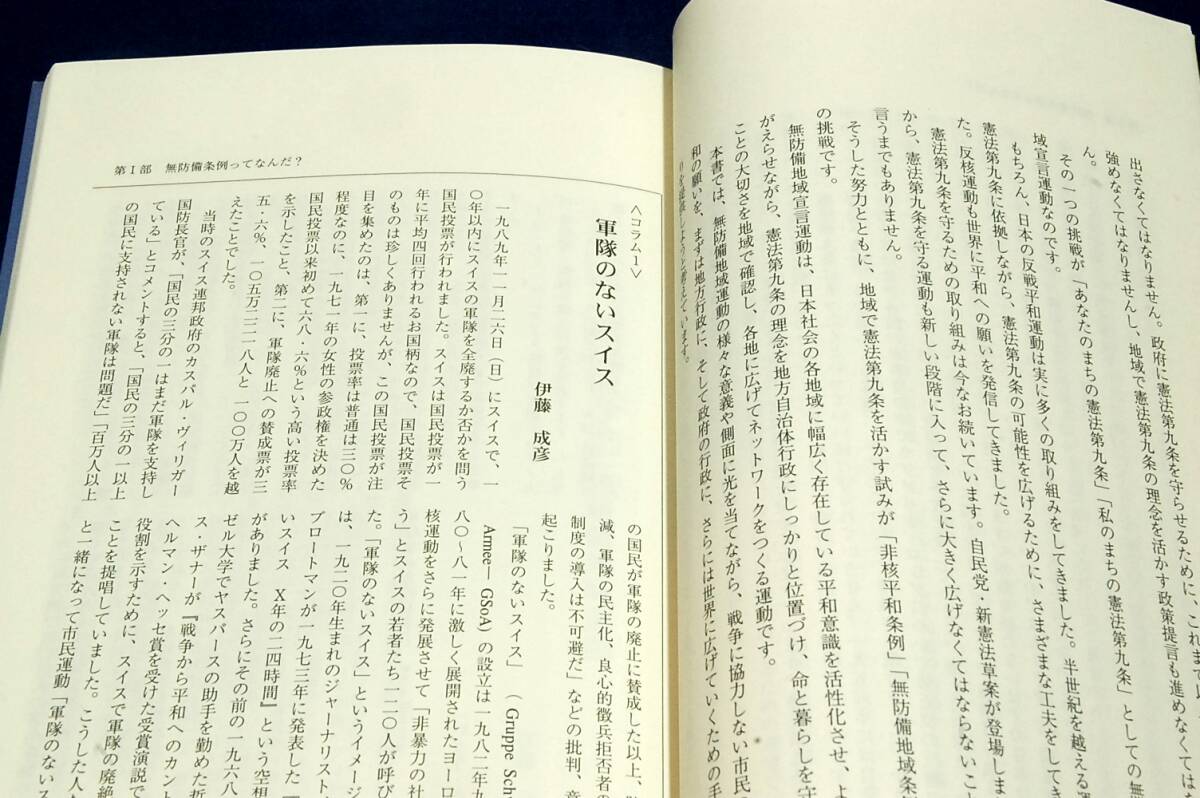 出さなくてはなりません。政府に憲法第九条を守らせるために、これまで
強めなくてはなりませんし、地域で憲法第九条の理念を活かす政策提言も進めなくては
ん。
その一つの挑戦が「あなたのまちの憲法第九条」「私のまちの憲法第九条」としての無
域宣言運動なのです。
もちろん、日本の反戦平和運動は実に多くの取り組みをしてきました。半世紀を越える運
憲法第九条に依拠しながら、憲法第九条の可能性を広げるために、さまざまな工夫をしてき
た。反核運動も世界に平和への願いを発信してきました。
憲法第九条を守るための取り組みは今なお続いています。自民党・新憲法草案が登場しま
から、憲法第九条を守る運動も新しい段階に入って、さらに大きく広げなくてはならないこ
言うまでもありません。
そうした努力とともに、地域で憲法第九条を活かす試みが「非核平和条例」「無防備地域条
の挑戦です。
無防備地域宣言運動は、日本社会の各地域に幅広く存在している平和意識を活性化させ、よ
がえらせながら、憲法第九条の理念を地方自治体行政にしっかりと位置づけ、命と暮らしを守
ことの大切さを地域で確認し、各地に広げてネットワークをつくる運動です。
本書では、無防備地域運動の様々な意義や側面に光を当てながら、戦争に協力しない市民の
和の願いを、まずは地方行政に、そして政府の行政に、さらには世界に広げていくための手
第Ⅰ部 無防備条例ってなんだ？
〈コラム1〉
軍隊のないスイス
伊藤 成彦
一九八九年一一月二六日（日）にスイスで、一
〇年以内にスイスの軍隊を全廃するか否かを問う
国民投票が行われました。スイスは国民投票が一
年に平均四回行われるお国柄なので、国民投票そ
のものは珍しくありませんが、この国民投票が注
目を集めたのは、第一に、投票率は普通は三〇％
程度なのに、一九七一年の女性の参政権を決めた
国民投票以来初めて六八・六％という高い投票率
を示したこと、第二に、軍隊廃止への賛成票が三
五・六％、一〇五万二二一八人と一〇〇万人を越
えたことでした。
当時のスイス連邦政府のカスパル・ヴィリガー
国防長官が、「国民の三分の一はまだ軍隊を支持し
ている」とコメントすると、「国民の三分の一以上
の国民に支持されない軍隊は問題だ」「百万人以上
の国民が軍隊の廃止に賛成した以上、
減、軍隊の民主化、良心的徴兵拒否者の
制度の導入は不可避だ」などの批判、意
起こりました。
「軍隊のないスイス」（Gruppe Sch
Armee―GSoA）の設立は一九八二年
八〇〜八一年に激しく展開されたヨーロ
核運動をさらに発展させて「非暴力の社
う」とスイスの若者たち一二〇人が呼び
た。「軍隊のないスイス」というイメージ
は、一九二〇年生まれのジャーナリスト
ブロートマンが一九七三年に発表した『
いスイス X年の二四時間』という空想
がありました。さらにその前の一九六八
ゼル大学でヤスパースの助手を勤めた哲
ス・ザナーが『戦争から平和へのカント
ヘルマン・ヘッセ賞を受けた受賞演説で
役割を示すために、スイスで軍隊の廃絶
ことを提唱していました。こうした人た
と一緒になって市民運動「軍隊のないス